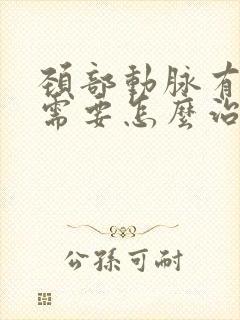 頚部動脉有
需要怎麼治
公孫可耐